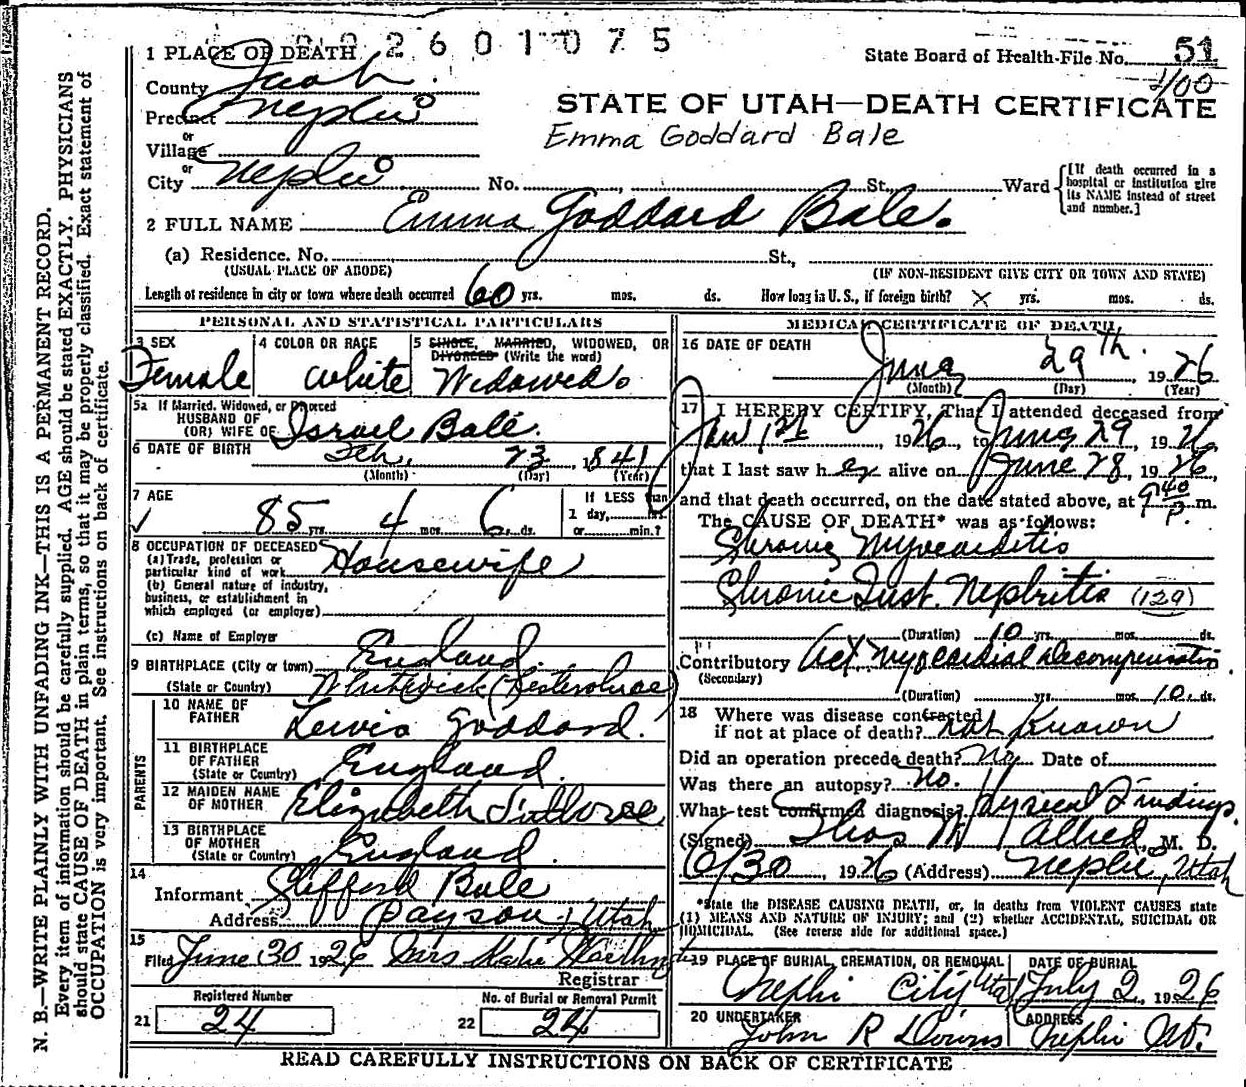 2601075
1 PLACE OF DEATH
State Board of Health-File No. 51
1100
County Juab
STATE OF UTAH—DEATH CERTIFICATE
Precinct Nephi
Emma Goddard Bale
or
Village
or
City Nephi No. St. Ward
[If death occurred in a
hospital or institution give
its NAME instead of street
and number.]
2 FULL NAME Emma Goddard Bale.
(a) Residence. No. St.,
(USUAL PLACE OF ABODE) (IF NON-RESIDENT GIVE CITY OR TOWN AND STATE)
Length of residence in city or town where death occurred 60 yrs. mos. ds. How long in U. S., if foreign birth? X yrs. mos. ds.
PERSONAL AND STATISTICAL PARTICULARS
3 SEX 4 COLOR OR RACE 5 SINGLE, MARRIED, WIDOWED, OR
DIVORCED (Write the word)
Female White Widowed
5a If Married, Widowed, or Divorced
HUSBAND OF
(OR) WIFE OF Israel Bale.
6 DATE OF BIRTH Feb. 23 1841
(Month) (Day) (Year)
7 AGE If LESS than
85 yrs. 4 mos. 6 ds. 1 day,
or min.?
8 OCCUPATION OF DECEASED
(a) Trade, profession or
particular kind of work Housewife
(b) General nature of industry,
business, or establishment in
which employed (or employer)
(c) Name of Employer
9 BIRTHPLACE (City or town) England.
(State or Country) Whitwick
PARENTS
10 NAME OF
FATHER Lewis Goddard.
11 BIRTHPLACE
OF FATHER
(State or Country) England.
12 MAIDEN NAME
OF MOTHER Elizabeth
13 BIRTHPLACE
OF MOTHER
(State or Country) England.
14
Informant Clifford Bale
Address Payson, Utah
15
Filed June 30 1926 Mrs
Registrar
Registered Number No. of Burial or Removal Permit
21 24 22 24
MEDICAL CERTIFICATE OF DEATH
16 DATE OF DEATH
June 29th. 1926
(Month) (Day) (Year)
17 I HEREBY CERTIFY, That I attended deceased from
Jan 1st, 1926, to June 29, 1926,
that I last saw her alive on June 28, 1926,
and that death occurred, on the date stated above, at 9 40 P. m.
The CAUSE OF DEATH* was as follows:
Chronic Myocarditis
Chronic Inst. Nephritis (129)
(Duration) 10 yrs. mos. ds.
Contributory Act Myocardial decompensation
(Secondary)
(Duration) yrs. mos. 10 ds.
18 Where was disease contracted
if not at place of death? not Known
Did an operation precede death? No Date of
Was there an autopsy? No.
What test confirmed diagnosis? Physical Findings.
(Signed) Thos M Allred, M. D.
6/30, 1926 (Address) Nephi, Utah
*State the DISEASE CAUSING DEATH, or, in deaths from VIOLENT CAUSES state
(1) MEANS AND NATURE OF INJURY; and (2) whether ACCIDENTAL, SUICIDAL OR
HOMICIDAL. (See reverse side for additional space.)
19 PLACE OF BURIAL, CREMATION, OR REMOVAL DATE OF BURIAL
Nephi City Utah July 2, 1926
20 UNDERTAKER ADDRESS
John R Downs Nephi Ut.
READ CAREFULLY INSTRUCTIONS ON BACK OF CERTIFICATE
N. B.—WRITE PLAINLY WITH UNFADING INK—THIS IS A PERMANENT RECORD.
Every item of information should be carefully supplied. AGE should be stated EXACTLY. PHYSICIANS
should state CAUSE OF DEATH in plain terms, so that it may be properly classified. Exact statement of
OCCUPATION is very important. See instructions on back of certificate.